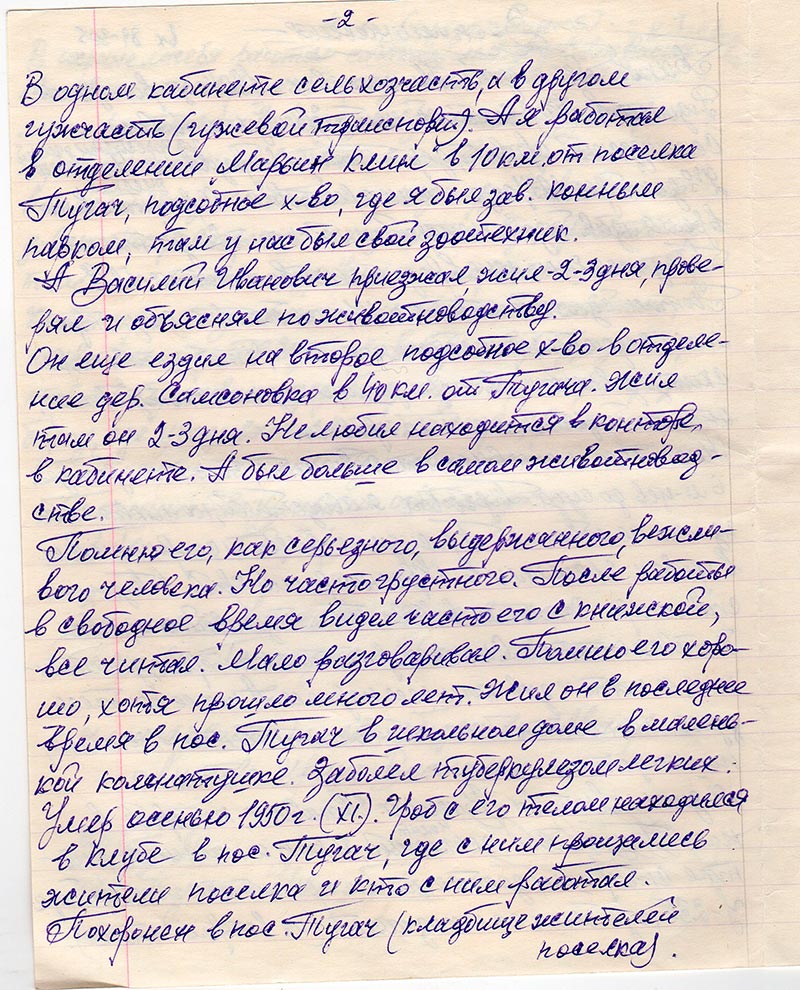 -2-
В одном кабинете сельхозчасть, а в другом
гужчасть (гужевой транспорт). А я работал
в отделении "Марьин клин" в 10 км. от поселка
Тугач, подсобное х-во, где я был зав. конным
парком, там у нас был свой зоотехник.
А Василий Иванович приезжал, жил-2-3 дня, прове-
рял и объяснял по животноводству.
Он еще ездил на второе подсобное х-во в отделе-
ние дер. Самсоновка в 40 км. от Тугача. Жил
там он 2-3 дня. Не любил находится в конторе,
в кабинете. А был больше в самом животновод-
стве.
Помню его, как серьезного, выдержанного, вежли-
вого человека. Но часто грустного. После работы
в свободное время видел часто его с книжкой,
все читал. Мало разговаривал. Помню его хоро-
шо, хотя прошло много лет. Жил он в последнее
время в пос. Тугач в школьном доме в малень-
кой комнатушке. Заболел туберкулезом легких.
Умер осенью 1950 г. (XI). Гроб с его телом находился
в клубе в пос. Тугач, где с ним прощались
жители поселка и кто с ним работал.
Похоронен в пос. Тугач (кладбище жителей
поселка).